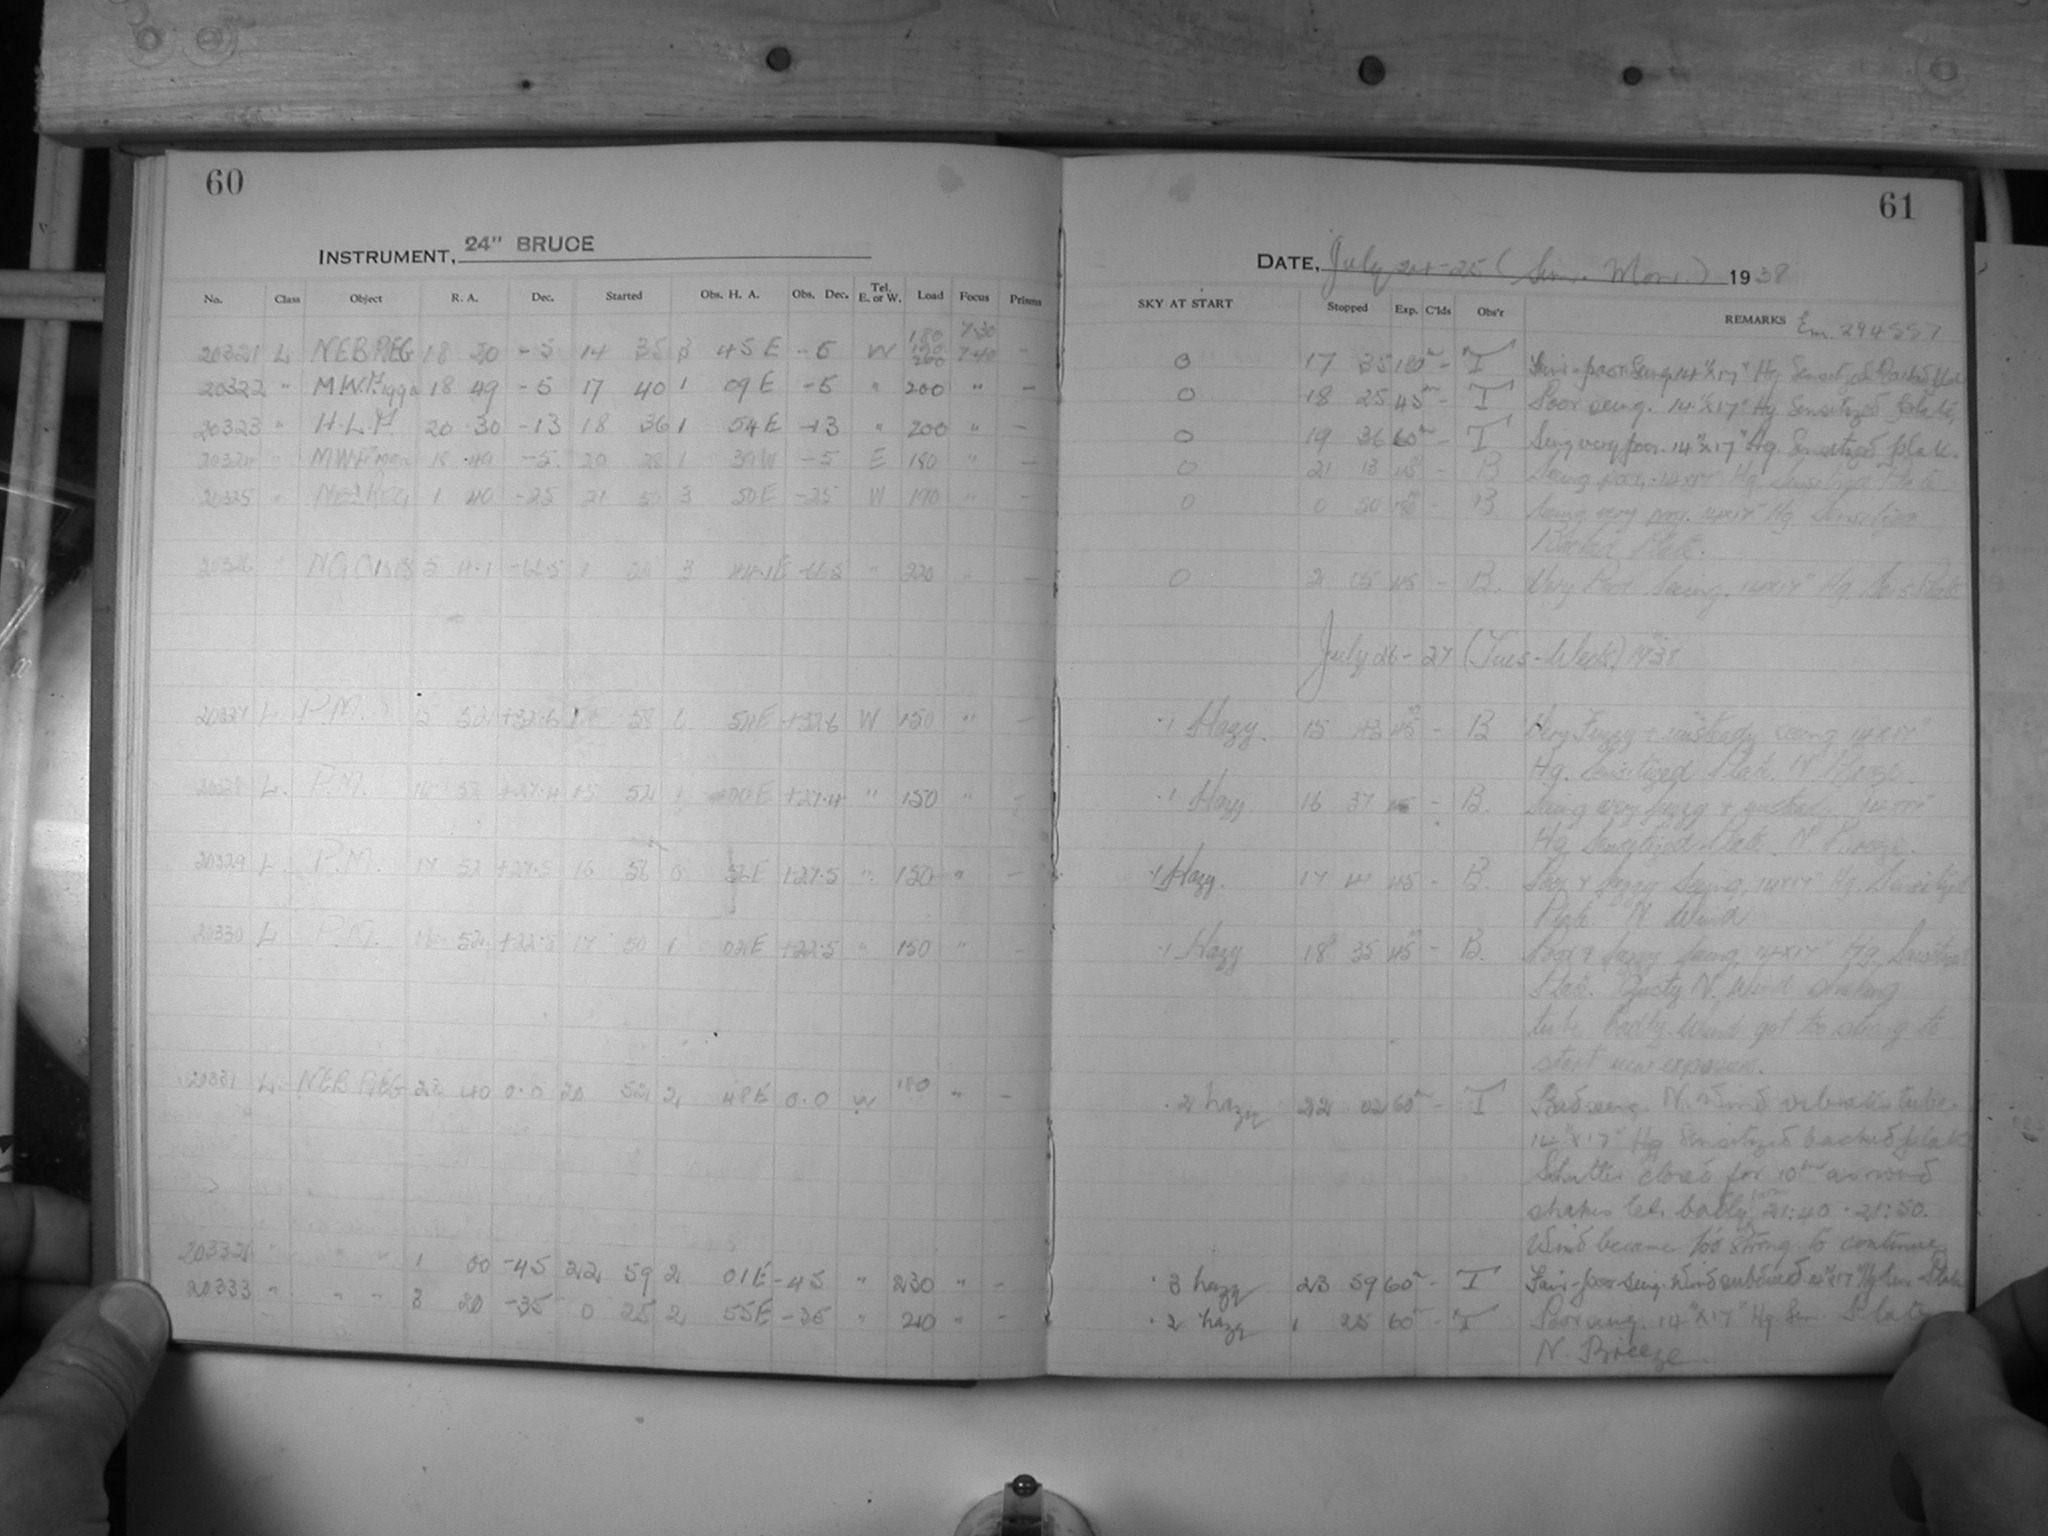 60
INSTRUMENT, 24" BRUCE
No. Class Object R. A. Dec. Started Obs. H. A. Obs. Dec. Tel. E. or W. Load Focus Prisms
20321 L NEB REG 18 50 -5 14 35 3 45 E -5 W 180 190 200 7.30 7.40 -
20322 " 18 49 -5 17 40 1 09 E -5 " 200 " -
20323 " 20 30 -13 18 36 1 54 E -13 " 200 " -
20324 " 18 49 -5 20 28 1 39 W -5 E 180 " -
20325 " NEB REG 1 40 -25 21 50 3 50 E -25 W 190 " -
20326 " 5 41.1 -66.5 1 20 3 44.1 E -66.5 " 220 " -
20327 L P.M. 15 52 +32.6 14 58 54 E +32.6 W 150 " -
20328 L. P.M. 16 52 +27.4 15 52 1 00 E +27.4 " 150 " -
20329 L. P.M. 17 52 +27.5 16 56 0 56 E +27.5 " 150 " -
20330 L P.M. 52 +22.5 17 50 1 02 E +22.5 " 150 " -
20331 L. NEB REG 23 40 0.0 20 52 2 48 E 0.0 W 180 " -
20332 " " " 1 00 -45 22 59 2 01 E -45 " 230 " -
20333 " " " 3 20 -35 0 25 2 55 E -35 " 210 " -
61
DATE, July 24-25 (Sun. Mon.) 1938
SKY AT START Stopped Exp. C'lds Obs'r REMARKS Em. 294557
0 17 35 180m - T Fair-poor seeing 14"x17" Hg Sensitized Backed plate
0 18 25 45m - T Poor seeing. 14"x17" Hg Sensitized plate,
0 19 36 60m - T Seeing very poor. 14"x17" Hg Sensitized plate.
0 21 13 45 - B Seeing poor, 14x17" Hg Sensitized Plate
0 0 50 180 - B. Seeing very poor. 14x17" Hg Sensitized
Backed Plate.
0 2 05 45 - B. Very Poor Seeing. 14x17" Hg Sens. Plate
July 26-27 (Tues-Wed) 1938
.1 Hazy. 15 43 45m - B Very Fuzzy + unsteady seeing 14x17"
Hg. Sensitized Plate. N Breeze.
.1 Hazy 16 37 45 - B. Seeing very fuzzy + unsteady. 14x17"
Hg Sensitized Plate. N. Breeze.
.1 Hazy. 17 41 45 - B. Poor & fuzzy Seeing, 14x17" Hg Sensitized
Plate N Wind
.1 Hazy 18 35 45m - B. Poor & fuzzy Seeing 14x17" Hg. Sensitized
Plate. Gusty N. Wind shaking
tube badly. Wind got too strong to
start new exposure.
.2 hazy 22 02 60m - T Bad seeing. N. Wind vibrates tube.
14"x17" Hg Sensitized backed plate
Shutter closed for 10m as wind
shakes tel. badly from 21:40 - 21:50.
Wind became too strong to continue
.3 hazy 23 59 60m - T Fair-poor seeing. Wind subdued 14"x17" Hg Sen. Plate
.2 hazy 1 25 60m - T Poor seeing. 14"x17" Hg. Sen. Plate
N. Breeze